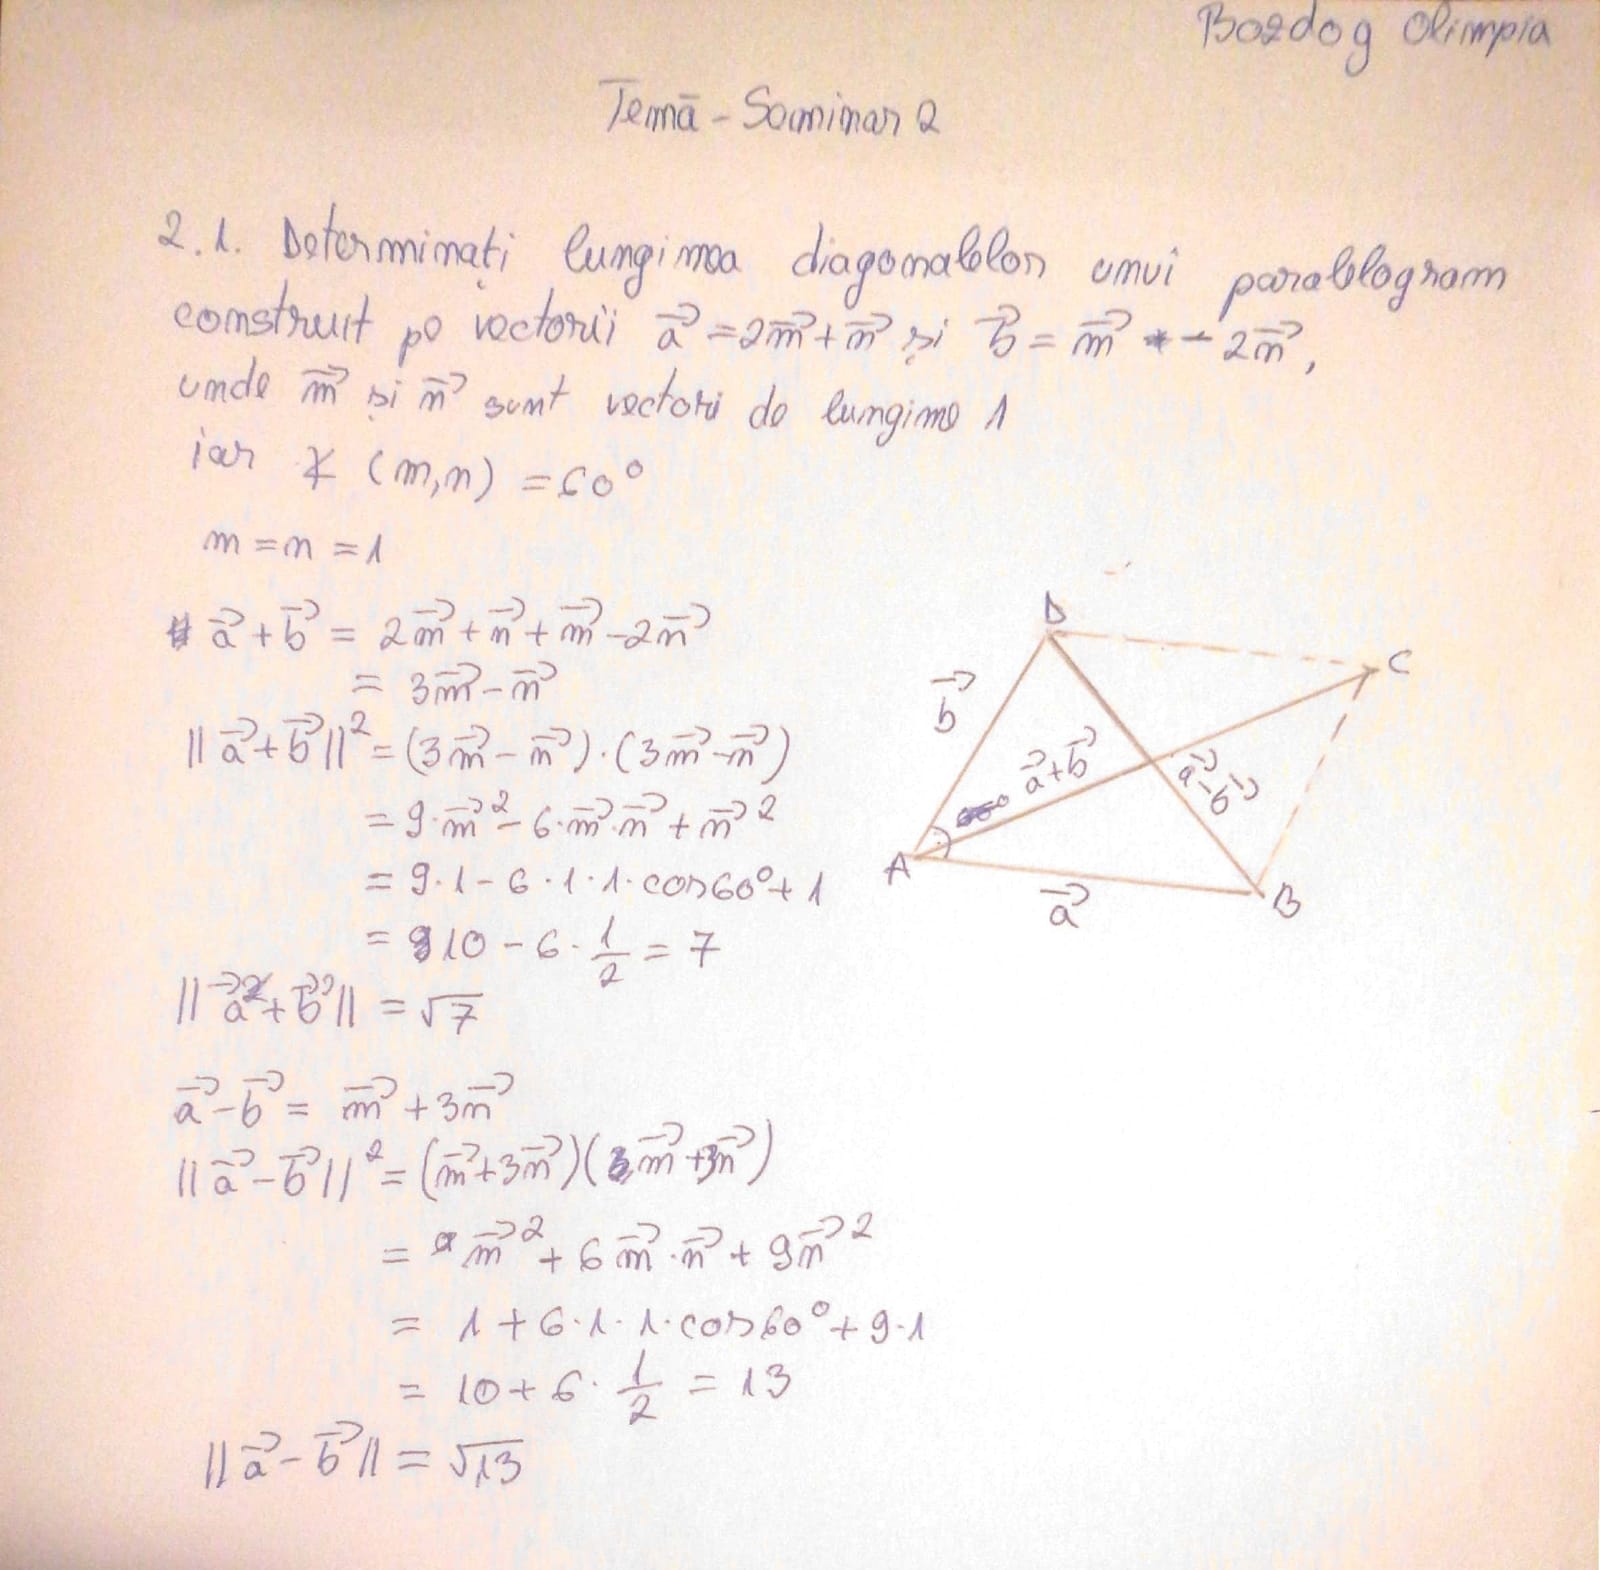 Bozdog Olimpia
Temă - Seminar 2
2.1. Determinați lungimea diagonalelor unui paralelogram
construit pe vectorii a⃗ = 2m⃗ + n⃗ și b⃗ = m⃗ - 2n⃗,
unde m⃗ și n⃗ sunt vectori de lungime 1
iar ∢ (m,n) = 60°
m = n = 1
a⃗ + b⃗ = 2m⃗ + n⃗ + m⃗ - 2n⃗
= 3m⃗ - n⃗
||a⃗ + b⃗||² = (3m⃗ - n⃗) · (3m⃗ - n⃗)
= 9·m⃗² - 6·m⃗·n⃗ + n⃗²
= 9·1 - 6·1·1·cos60° + 1
= 10 - 6·1/2 = 7
||a⃗ + b⃗|| = √7
a⃗ - b⃗ = m⃗ + 3n⃗
||a⃗ - b⃗||² = (m⃗ + 3n⃗)(m⃗ + 3n⃗)
= m⃗² + 6m⃗·n⃗ + 9n⃗²
= 1 + 6·1·1·cos60° + 9·1
= 10 + 6·1/2 = 13
||a⃗ - b⃗|| = √13
D
C
b⃗
a⃗+b⃗
a⃗-b⃗
A
a⃗
B